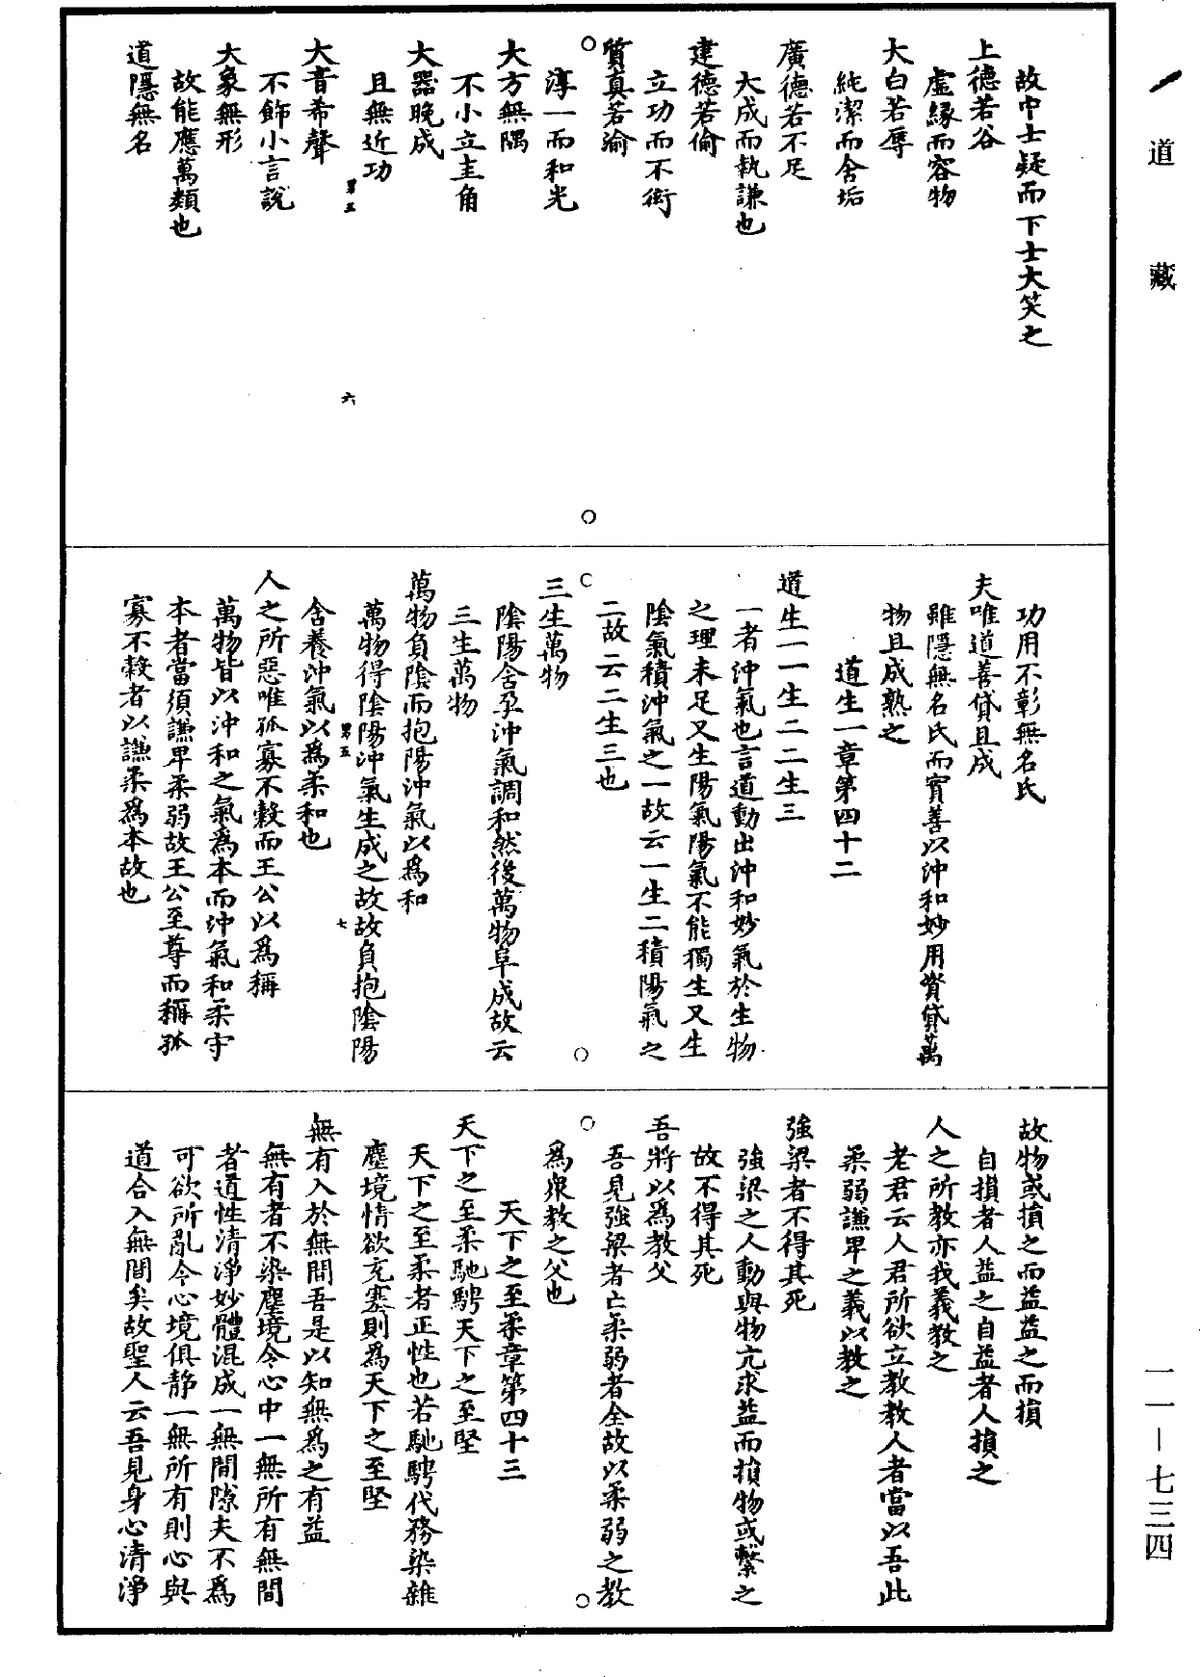 道藏
故中士疑而下士大笑之
上德若谷
虛緣而容物
大白若辱
純潔而含垢
廣德若不足
大成而執謙也
建德若偷
立功而不衒
質真若渝
淳一而和光
大方無隅
不小立圭角
大器晚成
且無近功
第三 六
大音希聲
不飾小言說
大象無形
故能應萬類也
道隱無名
功用不彰無名氏
夫唯道善貸且成
雖隱無名氏而實善以沖和妙用資貸萬
物且成熟之
道生一章第四十二
道生一一生二二生三
一者沖氣也言道動出沖和妙氣於生物
之理未足又生陽氣陽氣不能獨生又生
陰氣積沖氣之一故云一生二積陽氣之
二故云二生三也
三生萬物
陰陽含孕沖氣調和然後萬物阜成故云
三生萬物
萬物負陰而抱陽沖氣以為和
萬物得陰陽沖氣生成之故故負抱陰陽
第五 七
含養沖氣以為柔和也
人之所惡唯孤寡不穀而王公以為稱
萬物皆以沖和之氣為本而沖氣和柔守
本者當須謙卑柔弱故王公至尊而稱孤
寡不穀者以謙柔為本故也
故物或損之而益益之而損
自損者人益之自益者人損之
人之所教亦我義教之
老君云人君所欲立教教人者當以吾此
柔弱謙卑之義以教之
強梁者不得其死
強梁之人動與物亢求益而損物或繫之
故不得其死
吾將以為教父
吾見強梁者亡柔弱者全故以柔弱之教
為眾教之父也
天下之至柔章第四十三
天下之至柔馳騁天下之至堅
天下之至柔者正性也若馳騁代務染雜
塵境情欲充塞則為天下之至堅
無有入於無間吾是以知無為之有益
無有者不染塵境令心中一無所有無間
者道性清淨妙體混成一無間隙夫不為
可欲所亂令心境俱靜一無所有則心與
道合入無間矣故聖人云吾見身心清淨
一一—七三四